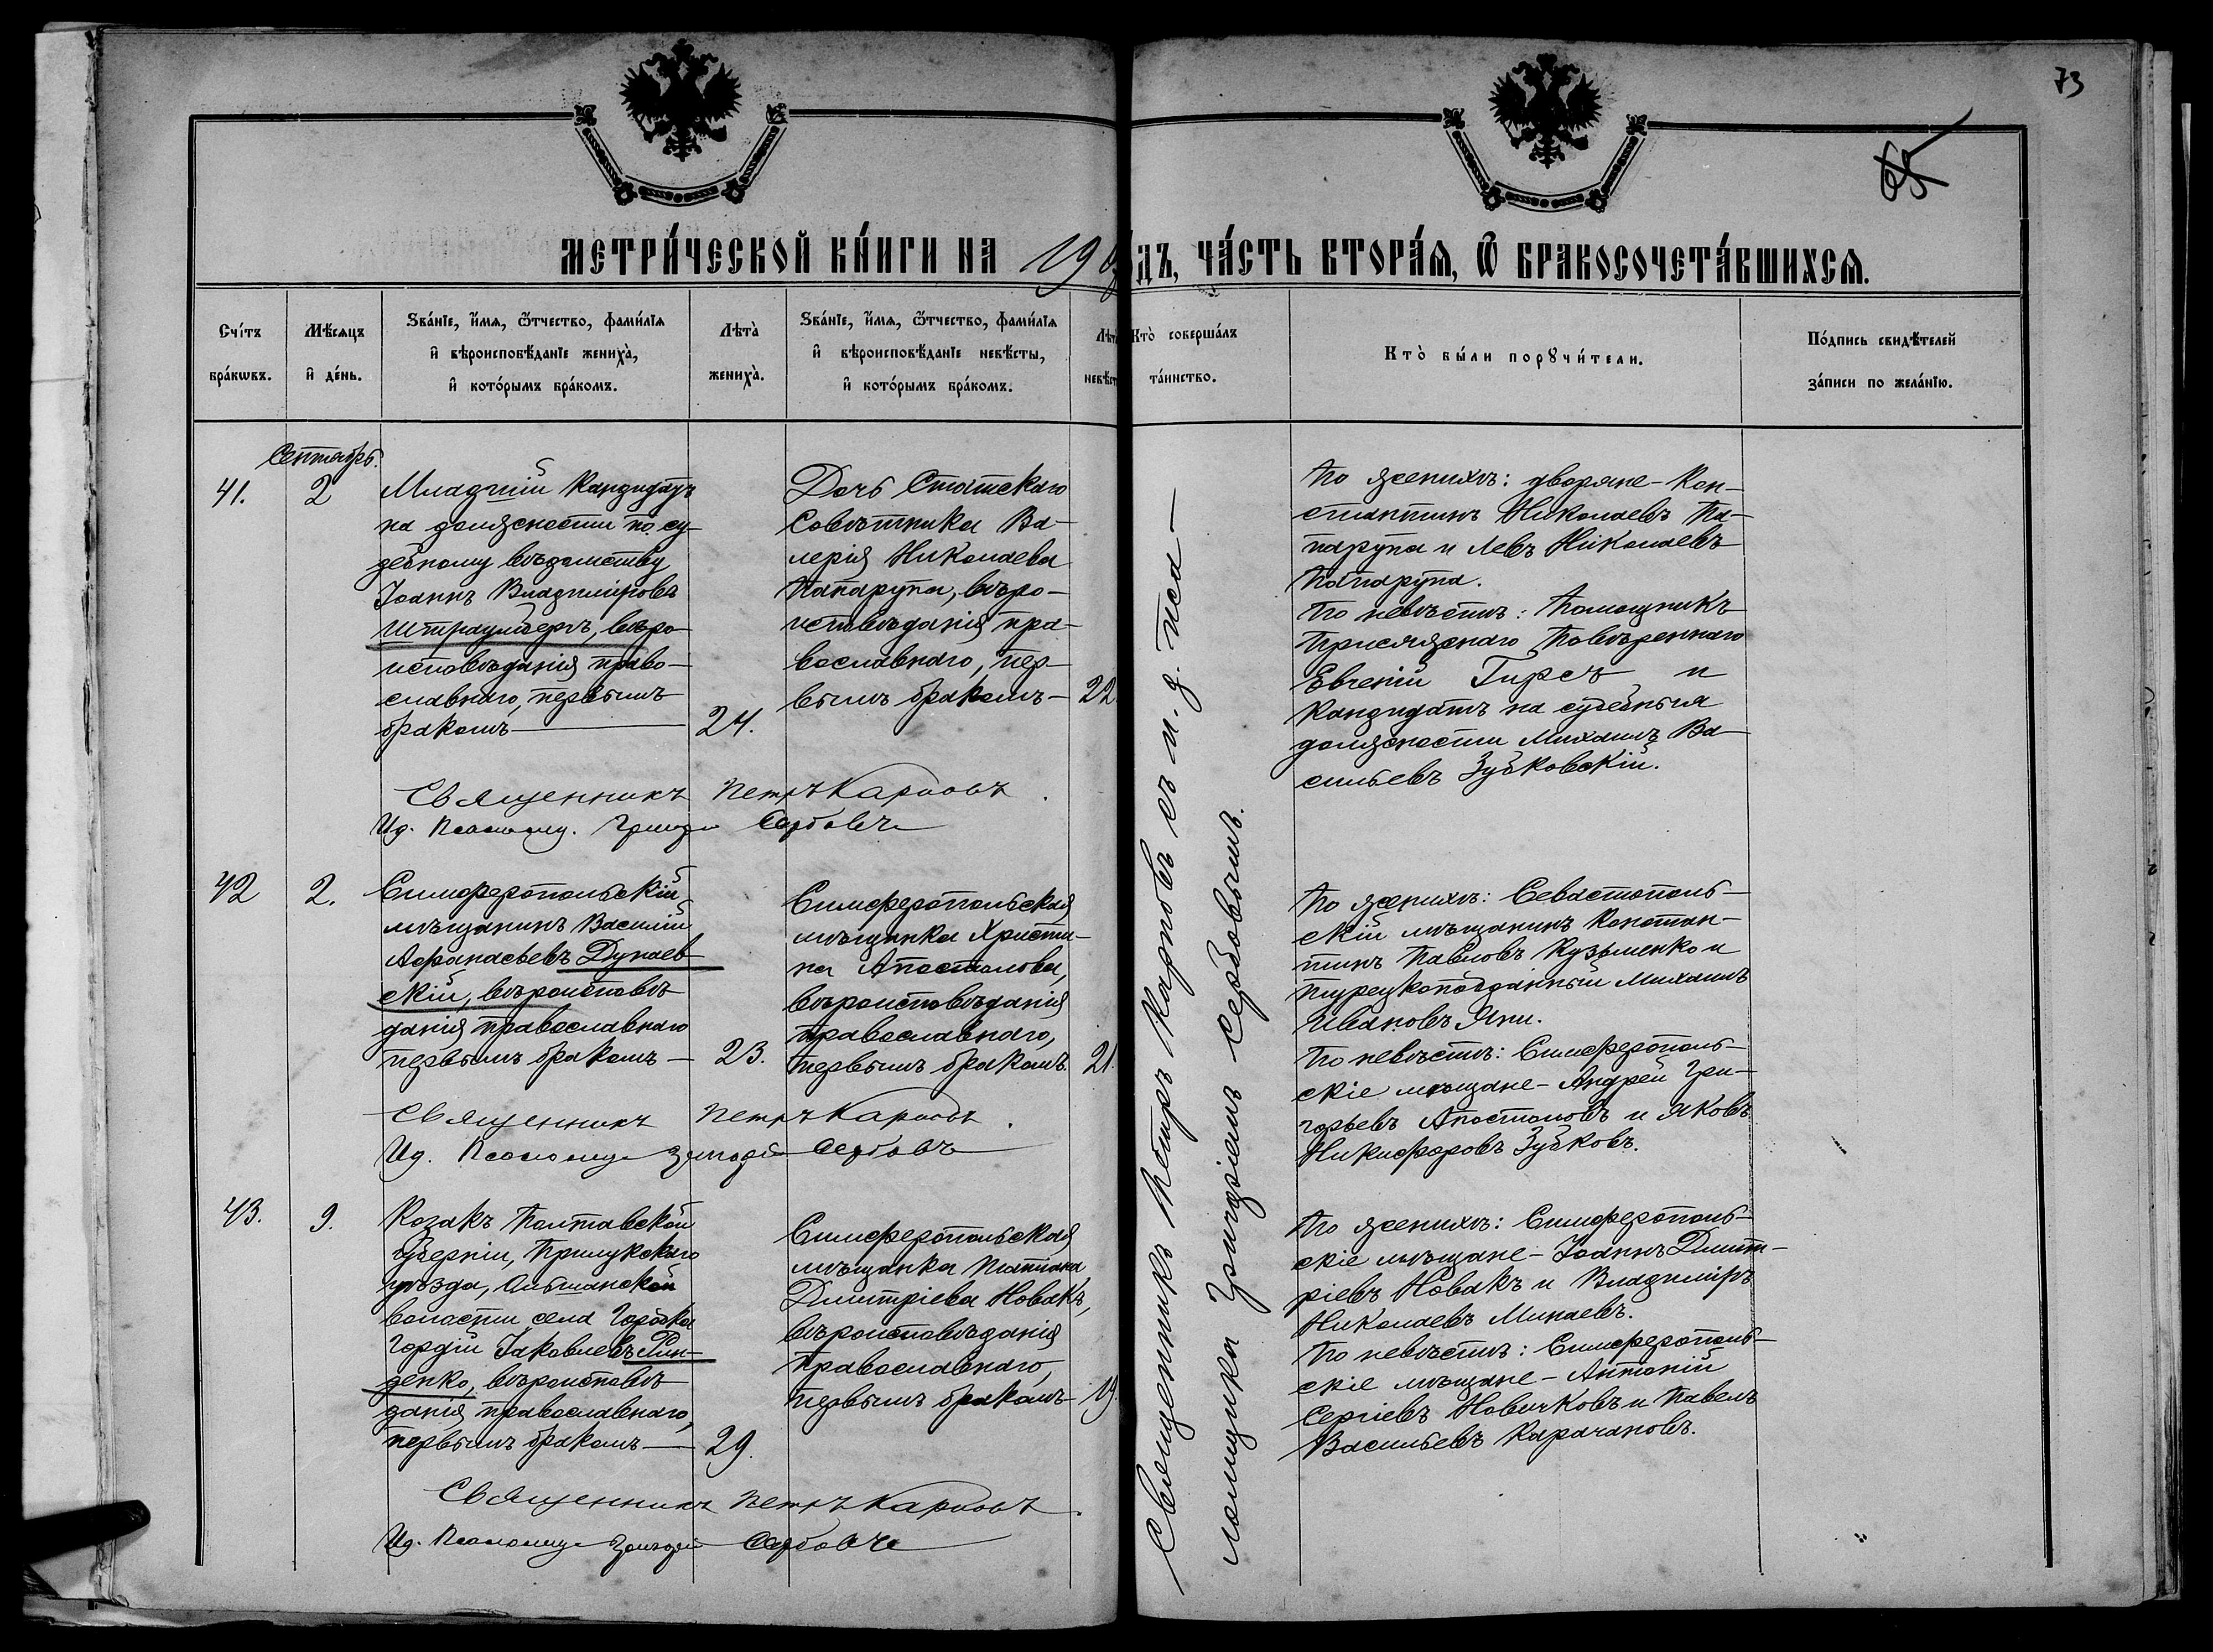 73
МЕТРИ́ЧЕСКОЙ КНИ́ГИ НА 19 ДЪ, ЧА́СТЬ ВТОРА́Я, Ѡ БРАКОСОЧЕТА́ВШИХСЯ.
Сче́тъ бра́кωвъ.
Мѣ́сяцъ и҆ де́нь.
Зва́нїе, и҆́мя, ѻ҆́тчество, фами́лїя
и҆ вѣроисповѣ́данїе жениха̀,
и҆ кото́рымъ бра́комъ.
Лѣта̀ жениха̀.
Зва́нїе, и҆́мя, ѻ҆́тчество, фами́лїя
и҆ вѣроисповѣ́данїе невѣ́сты,
и҆ кото́рымъ бра́комъ.
Лѣта невѣст
Кто̀ соверша́лъ
та́инство.
Кто̀ бы́ли порꙋчи́тели.
По́дпись свидѣ́телей
за́писи по жела́нїю.
Сентябрь.
41.
2
Младшій Кандидатъ
на должности по су-
дебному вѣдомству
Іоаннъ Владиміровъ
Штраумбергъ, вѣро-
исповѣданія право-
славнаго, первымъ
бракомъ
24.
Дочь Статскаго
Совѣтника Ва-
лерія Николаева
Папарупа, вѣро-
исповѣданія пра-
вославнаго, пер-
вымъ бракомъ
22
По женихѣ: дворяне - Кон-
стантинъ Николаевъ Па-
парупа и Левъ Николаевъ
Папарупа.
По невѣстѣ: Помощникъ
Присяжнаго Повѣреннаго
Евгеній Гирсъ и
Кандидатъ на судебныя
должности Михаилъ Ва-
сильевъ Зубковскій.
Священникъ Петръ Карповъ.
Ид. Псаломщ. Григорій Сербовъ
42
2.
Симферопольскій
мѣщанинъ Василій
Афанасьевъ Дунаев-
скій, вѣроисповѣ-
данія православнаго
первымъ бракомъ
23.
Симферопольская
мѣщанка Христи-
на Апостолова,
вѣроисповѣданія
православнаго,
первымъ бракомъ.
21.
По женихѣ: Севастополь-
скій мѣщанинъ Констан-
тинъ Павловъ Кузьменко и
турецкоподданный Михаилъ
Ивановъ Яни.
По невѣстѣ: Симферополь-
скіе мѣщане - Андрей Гри-
горьевъ Апостоловъ и Яковъ
Никифоровъ Зубковъ.
Священникъ Петръ Карповъ.
Ид. Псаломщ. Григорій Сербовъ
43.
9.
Козакъ Полтавской
губерніи, Прилукскаго
уѣзда, Ольшанской
волости села Городка
Гордій Іаковлевъ Рин-
денко, вѣроисповѣ-
данія православнаго,
первымъ бракомъ
29.
Симферопольская
мѣщанка Татіана
Димитріева Новакъ,
вѣроисповѣданія
православнаго,
первымъ бракомъ
19.
По женихѣ: Симферополь-
скіе мѣщане - Іоаннъ Димит-
ріевъ Новакъ и Владиміръ
Николаевъ Минаевъ.
По невѣстѣ: Симферополь-
скіе мѣщане - Антоній
Сергіевъ Новичковъ и Павелъ
Васильевъ Карачановъ.
Священникъ Петръ Карповъ.
Ид. Псаломщ. Григорій Сербовъ
Священникъ Петръ Карповъ съ и. д. пса-
ломщика Григоріемъ Сербовымъ.